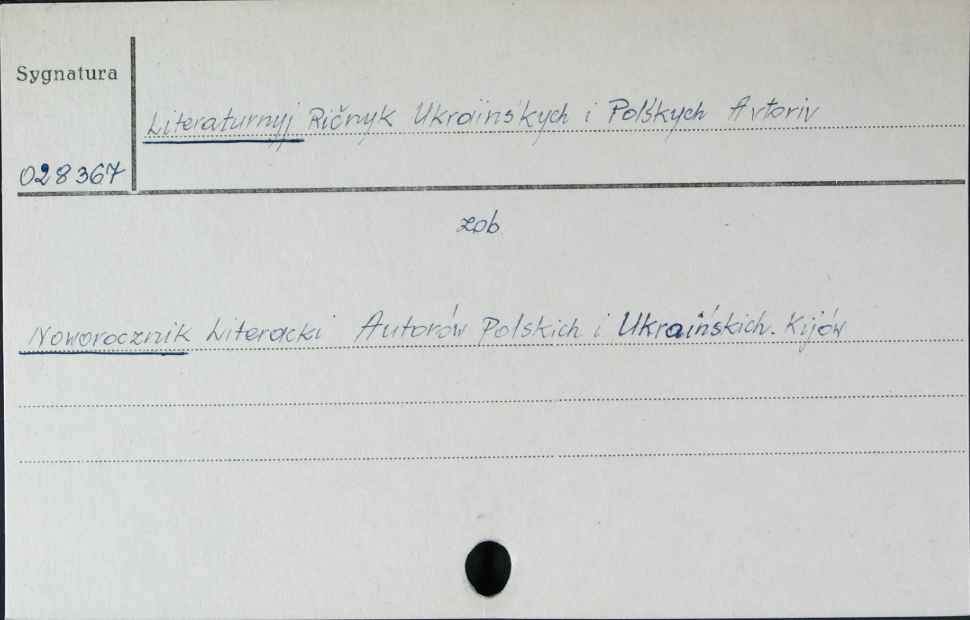 Sygnatura
Literaturnyj Ričnyk Ukraïns'kych i Pol'skych Avtoriv
028367
zob
Noworocznik Literacki Autorów Polskich i Ukraińskich. Kijów